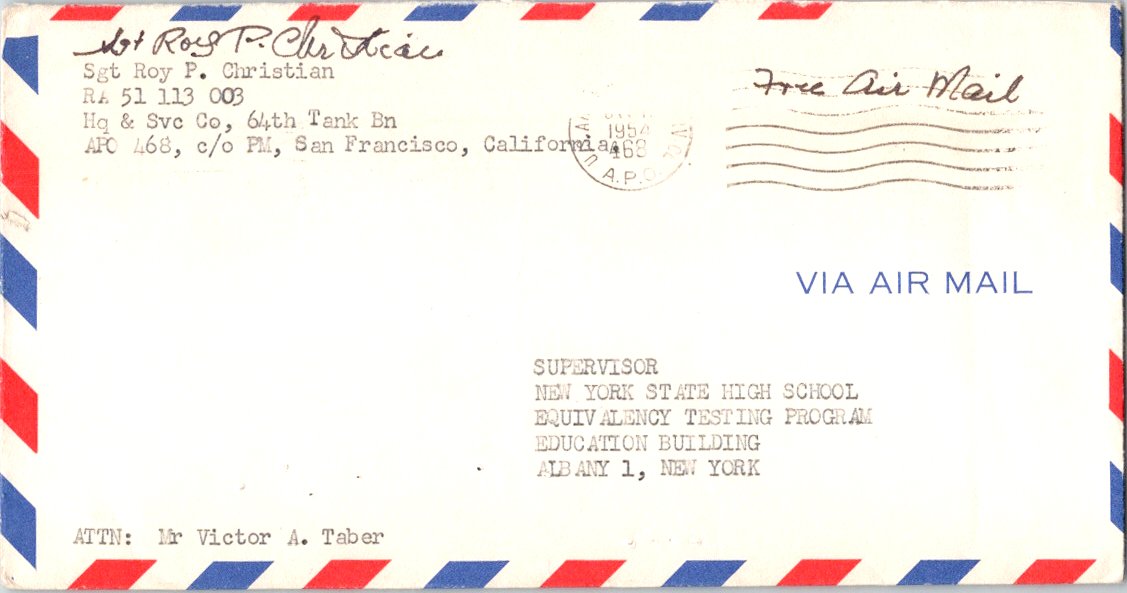 Sgt Roy P. Christian
Sgt Roy P. Christian
RA 51 113 003
Hq & Svc Co, 64th Tank Bn
APO 468, c/o PM, San Francisco, California
Free Air Mail
1954
468
A.P.O.
VIA AIR MAIL
SUPERVISOR
NEW YORK STATE HIGH SCHOOL
EQUIVALENCY TESTING PROGRAM
EDUCATION BUILDING
ALBANY 1, NEW YORK
ATTN: Mr Victor A. Taber